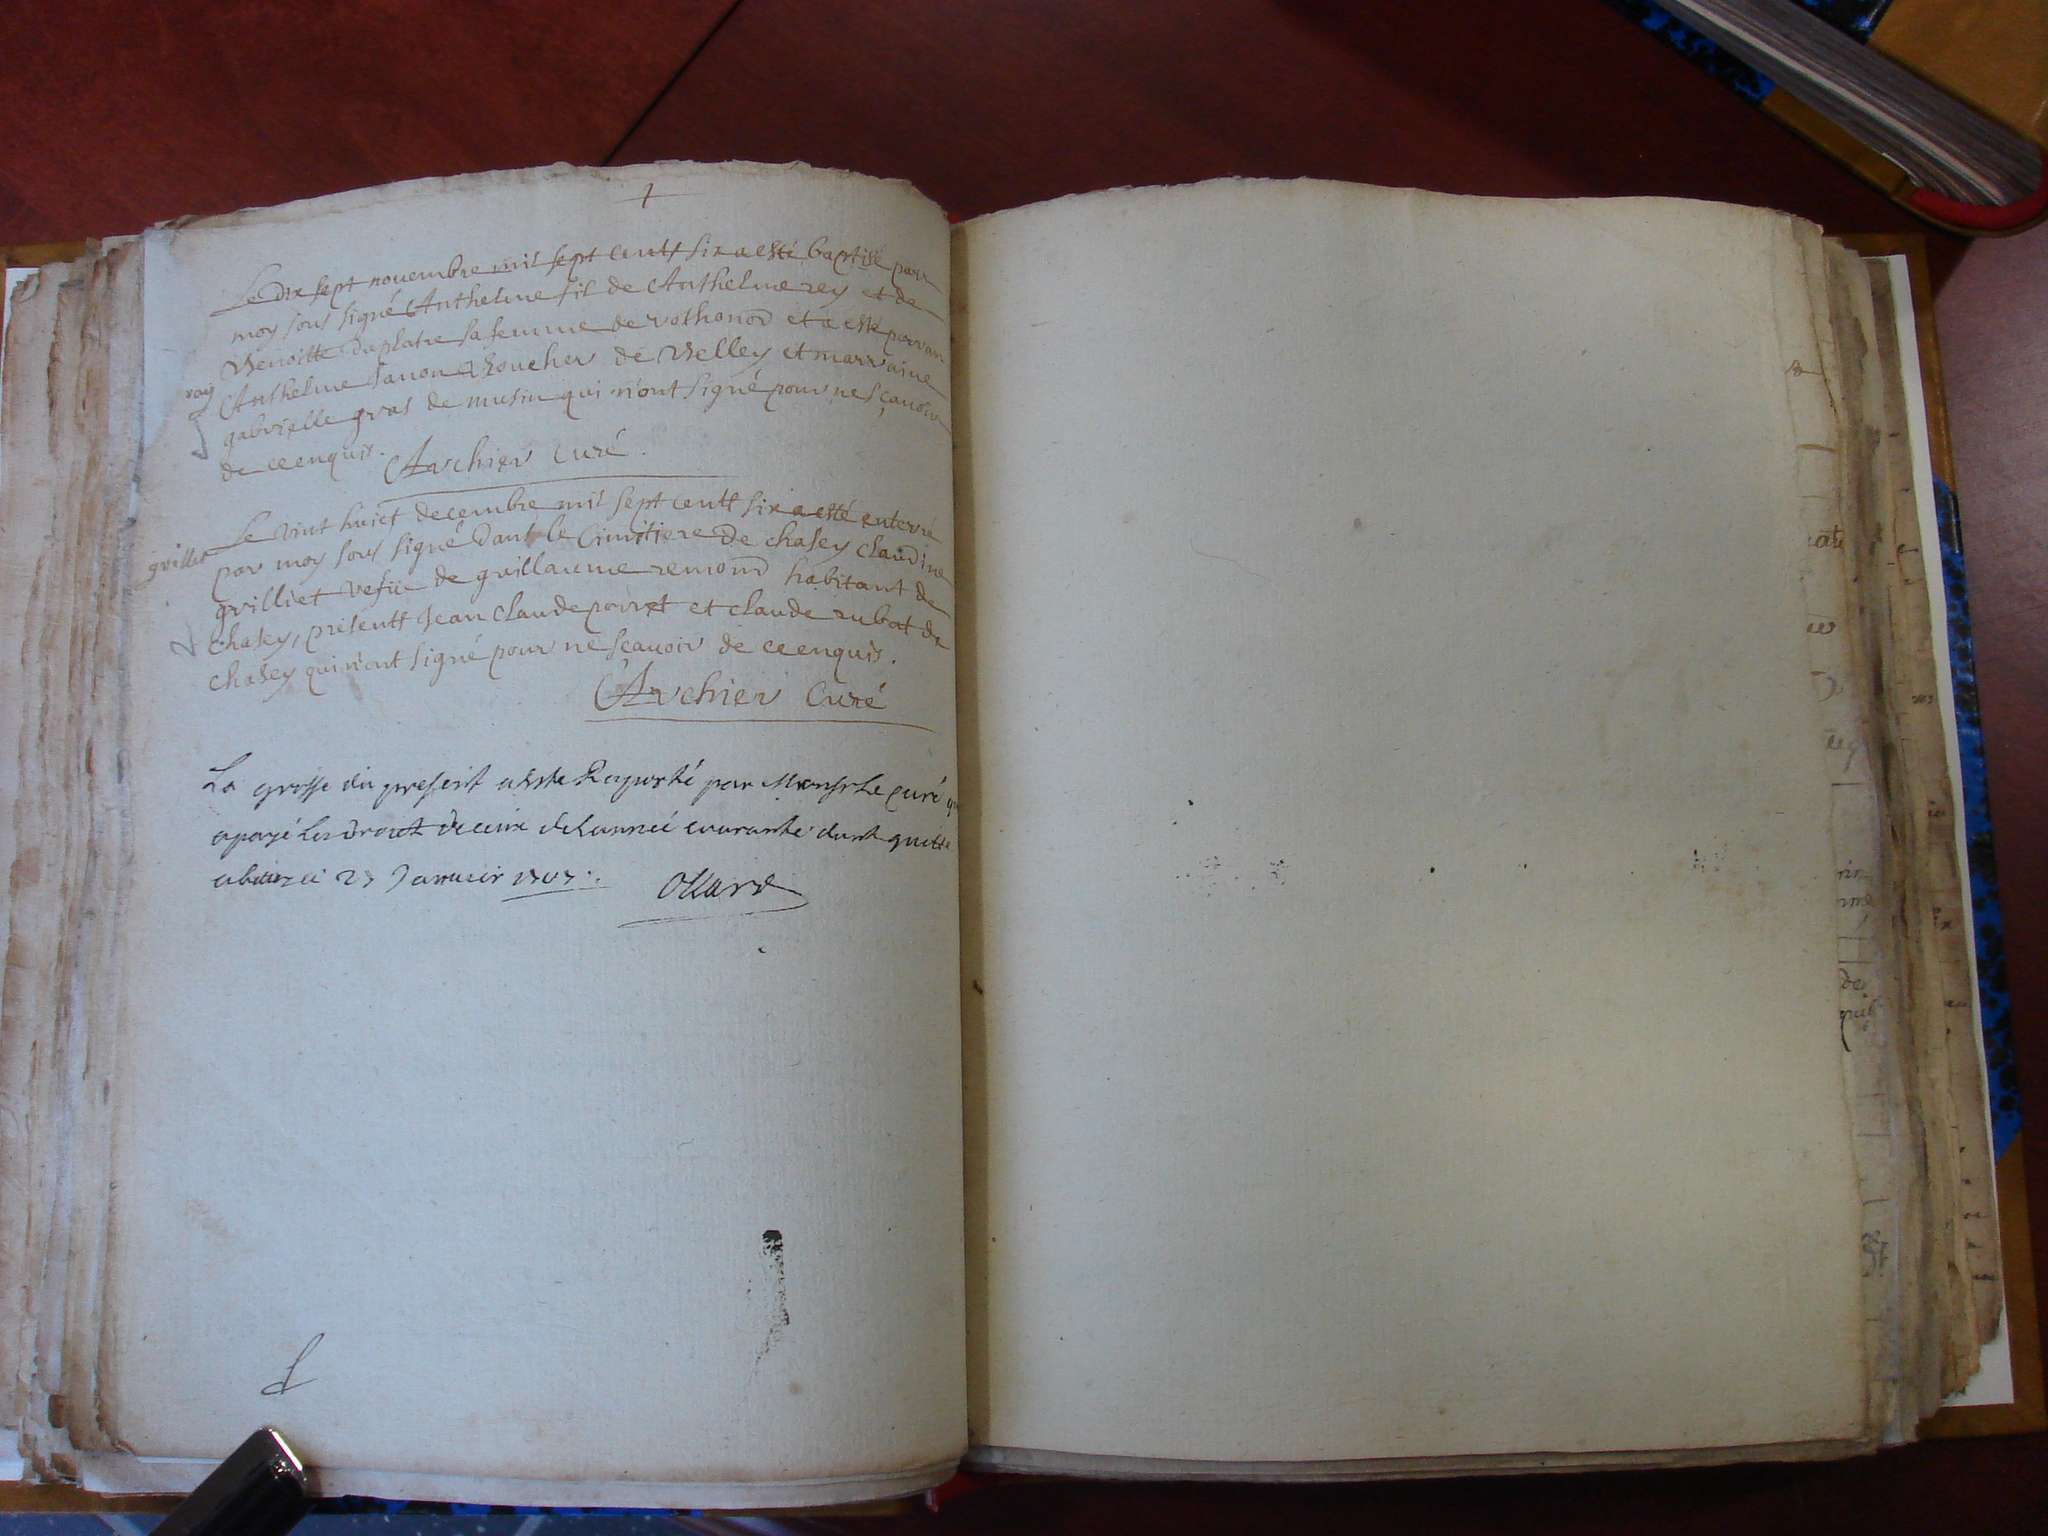 Le dix sept nouembre mil sept cents six a esté baptisé par
moy sous signé Anthelme fil de Anthelme rey et de
Benoitte duplatre sa femme de vothonod et a esté parrain
rey
Anthelme Janon boucher de Belley et marraine
gabrielle gras de musin qui n'ont signé pour ne sçauoir
de ce enquis.
Archier curé.
Le vint huict decembre mil sept cents six a esté enterré
grilliet
par moy sous signé dans le Cimitiere de chasey claudine
grilliet vefue de guillaume remond habitant de
chasey, presents Jean claude poirret et claude rubat de
chasey qui n'ont signé pour ne scauoir de ce enquis.
Archier Curé
La grosse du present a esté Raporté par Monsr Le curé qui
a payé les droits de l'année courante dont quitte
ce 27 Januier 1707.